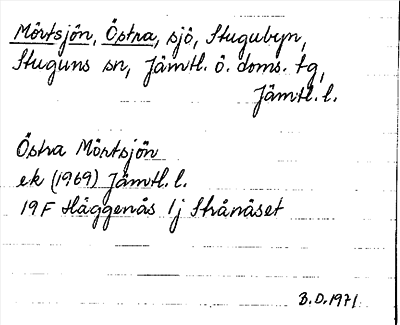 Mörtsjön, Östra, sjö, Stugubyn,
Stuguns sn, Jämtl. ö. doms. tg,
Jämtl. l.
Östra Mörtsjön
ek (1969) Jämtl. l.
19F Häggenås 1j Strånäset
B.D. 1971